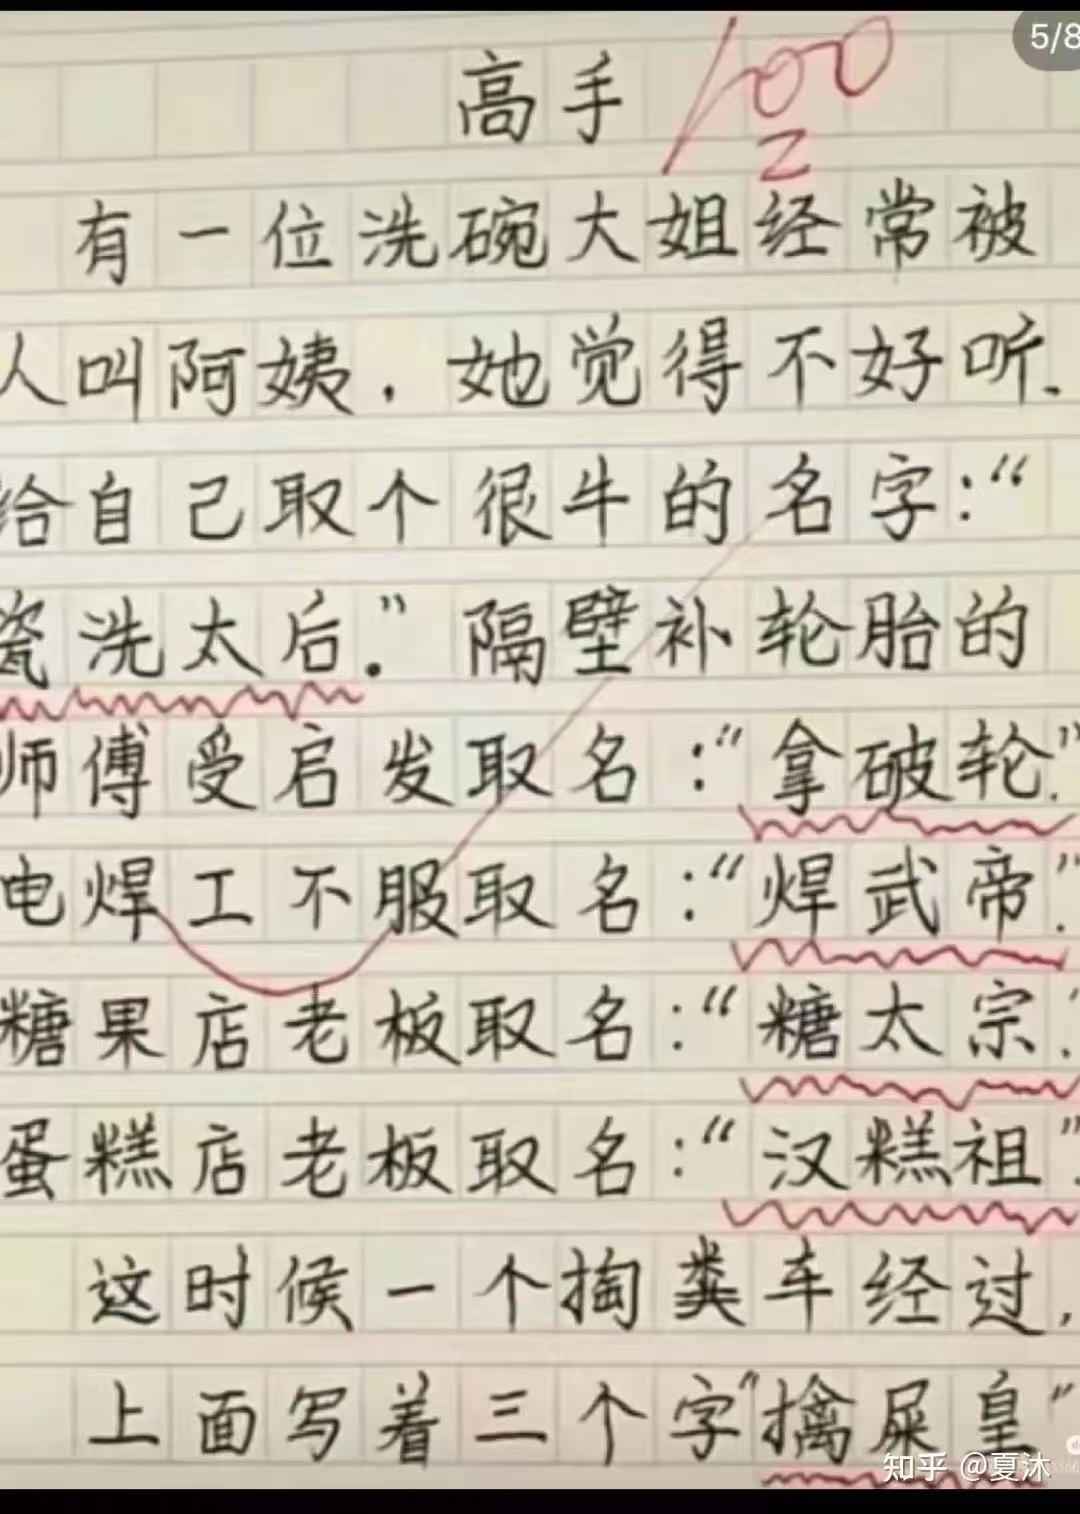 5/8
高手
100
有一位洗碗大姐经常被
人叫阿姨,她觉得不好听.
给自己取个很牛的名字:“
瓷洗太后.”隔壁补轮胎的
师傅受启发取名:“拿破轮.”
电焊工不服取名:“焊武帝.”
糖果店老板取名:“糖太宗.”
蛋糕店老板取名:“汉糕祖”.
这时候一个掏粪车经过,
上面写着三个字“擒屎皇”
知乎 @夏沐